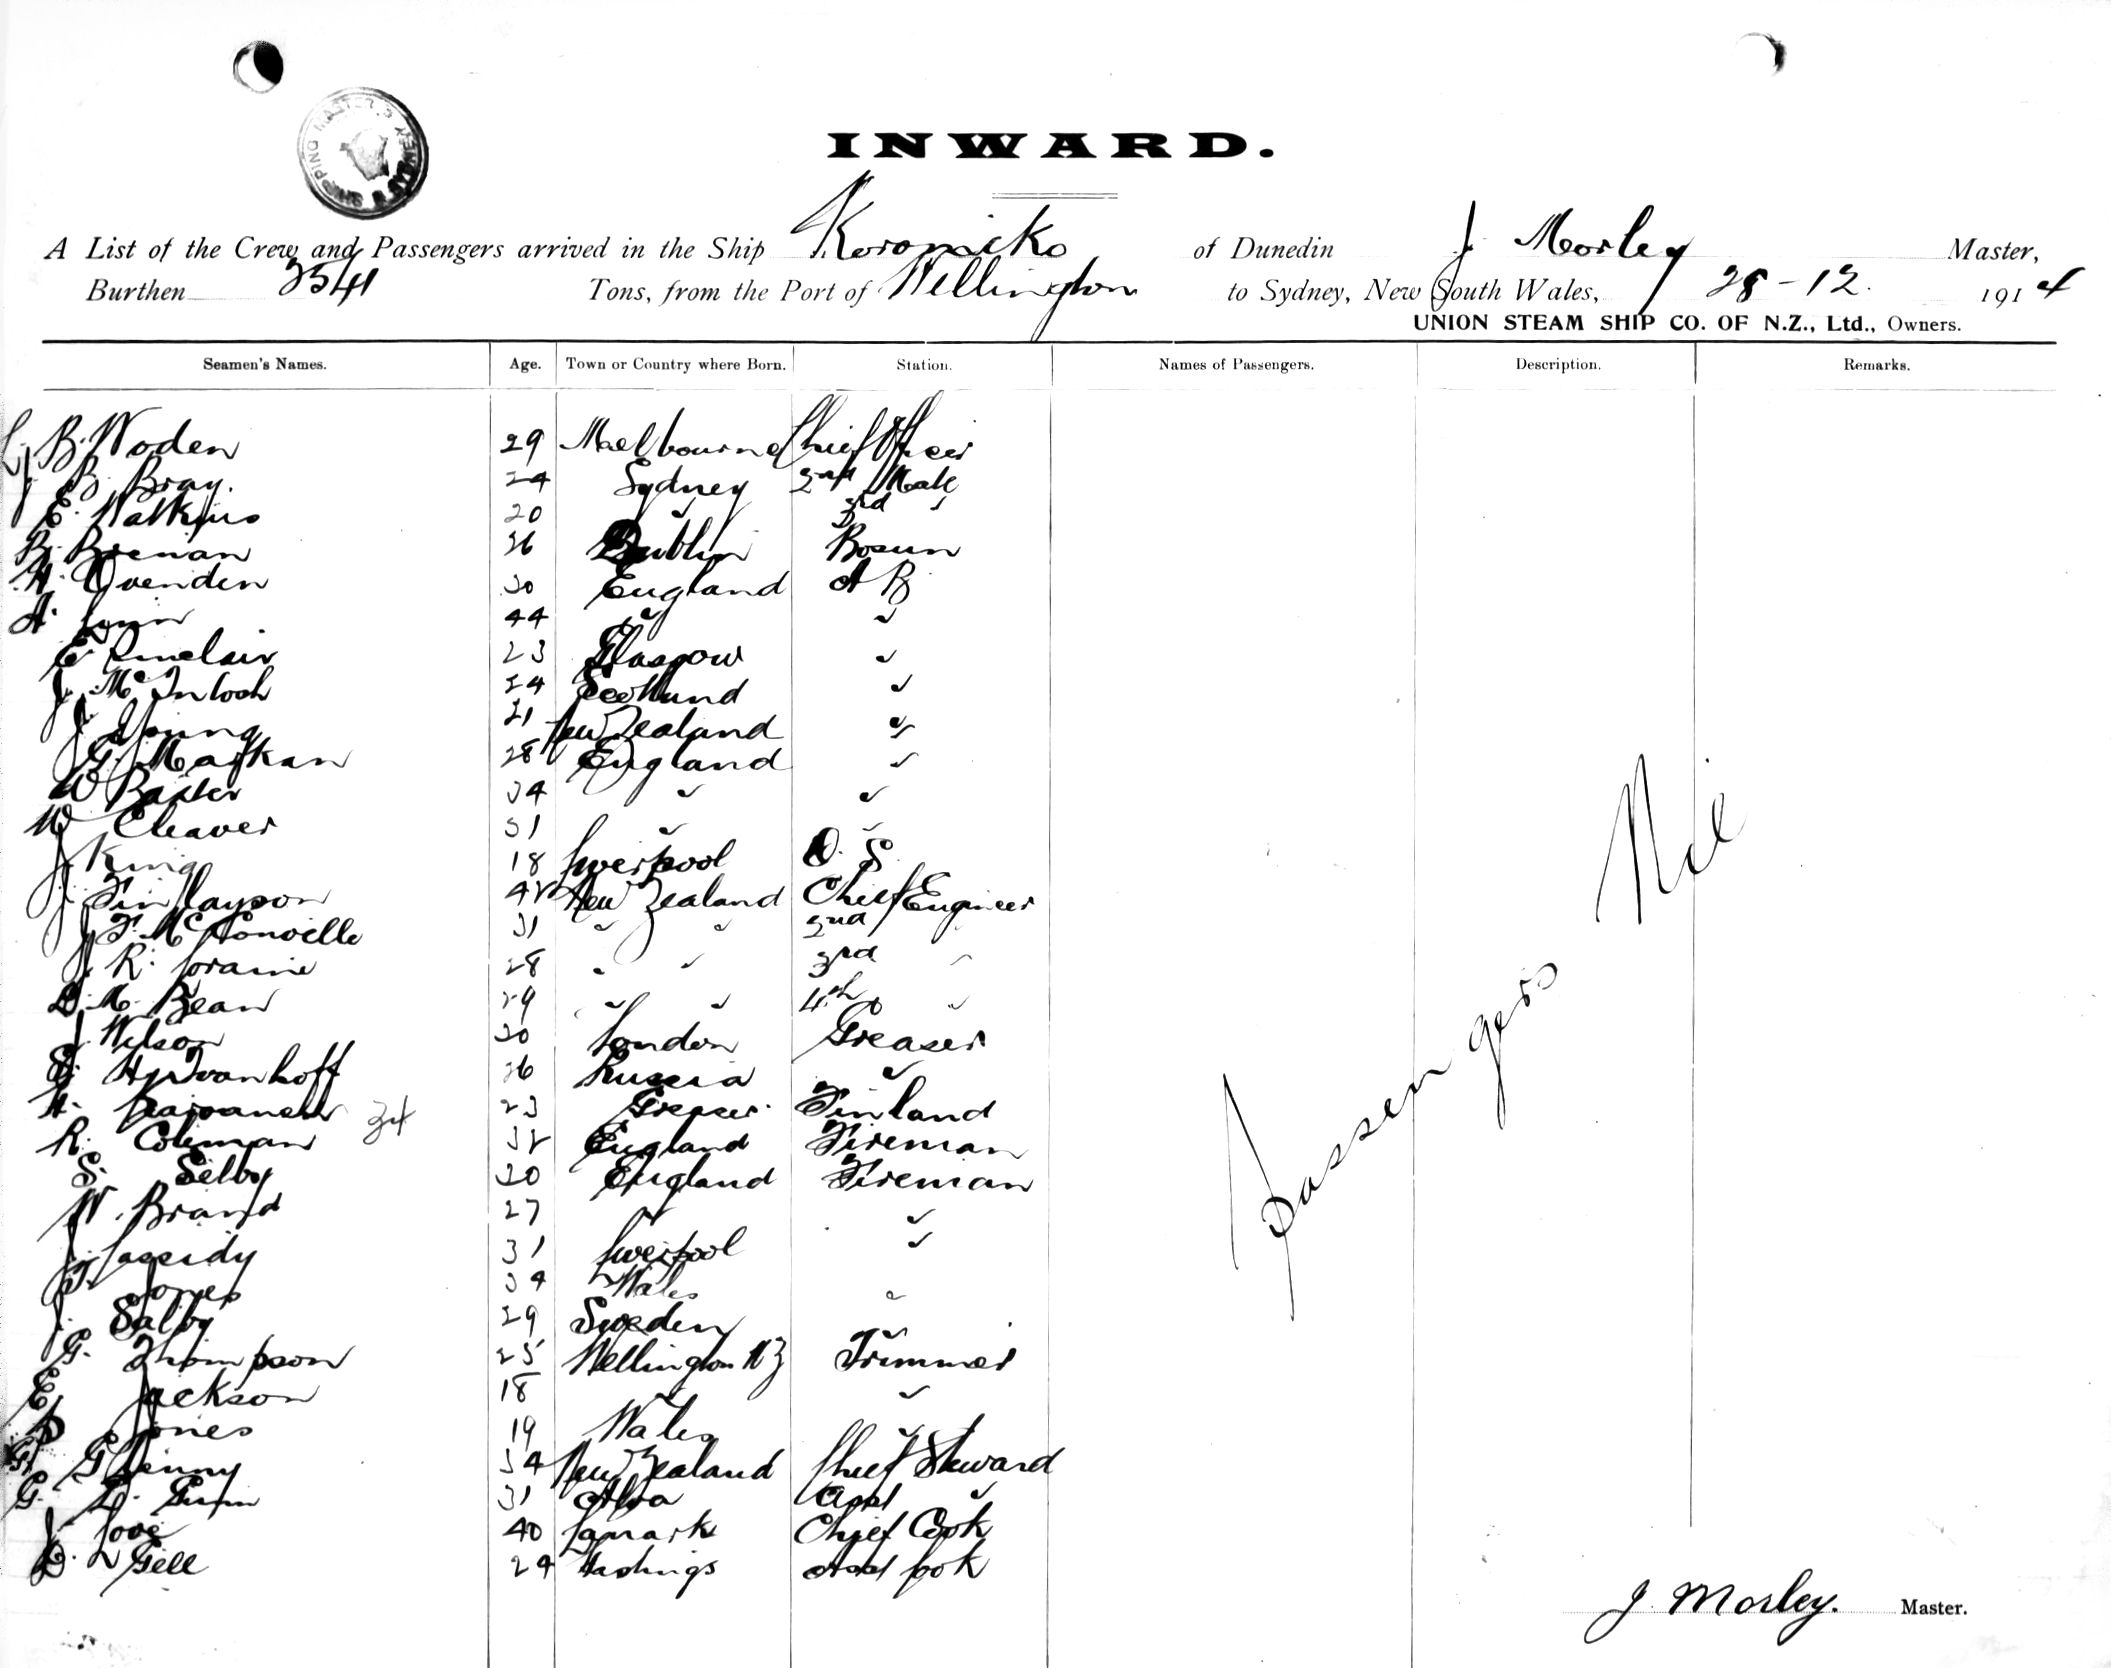 SHIPPING MASTER'S
INWARD.
A List of the Crew and Passengers arrived in the Ship Koromiko of Dunedin J Morley Master,
Burthen 2541 Tons, from the Port of Wellington to Sydney, New South Wales, 28-12. 1914
UNION STEAM SHIP CO. OF N.Z., Ltd., Owners.
Seamen's Names. Age. Town or Country where Born. Station. Names of Passengers. Description. Remarks.
B. Woden 29 Melbourne Chief Officer
J. B. Bray. 24 Sydney 2nd Mate
E. Watkins 20 " 3rd "
B. Brenan Dublin Bosun
H. Ovenden 30 England A B
A. Lynn 44 " "
E Sinclair 23 Glasgow "
J. McIntosh 24 Scotland "
J Young 21 New Zealand "
G. Markan 28 England "
W Baxter 34 " "
W Cleaver 31 " "
J King 18 Liverpool O. S.
J Finlayson New Zealand Chief Engineer
J F. McConville 31 " " 2nd
J. R. Loraine 28 " " 3rd "
D. M. Bean 29 " " 4th "
J Wilson 30 London Greaser
Ivanhoff Russia "
H. 23 Greaser Finland
24
R. Coleman England Fireman
S. Selby 30 England Fireman
W. Brand 27 " "
J. Cassidy 31 Liverpool "
T. Jones 34 Wales "
J. Salby 29 Sweden "
G. Thompson 25 Wellington NZ Trimmer
E. Jackson 18 " "
Jones 19 Wales "
G Denny 34 New Zealand Chief Steward
G. Gunn 31 Alva Asst "
J. Love 40 Lanark Chief Cook
D. Gell 24 Hastings Asst Cook
Passengers Nil
J. Morley. Master.